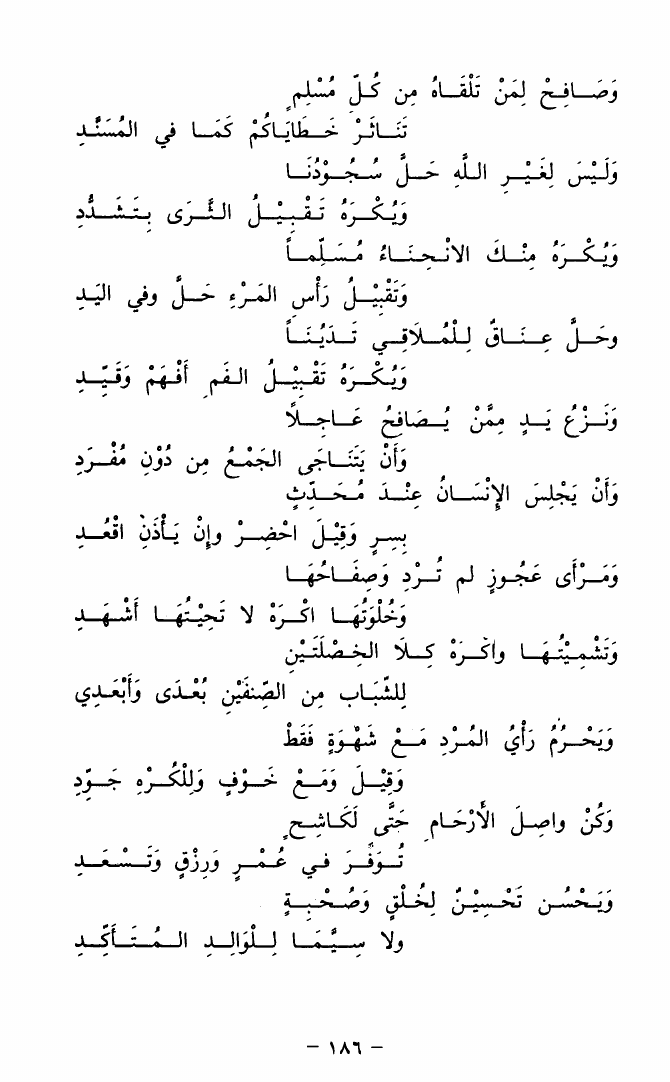 وَصَافِحْ لِمَنْ تَلْقَاهُ مِن كُلِّ مُسْلِمٍ
تَنَاثَرْ خَطَايَاكُمْ كَمَا في المُسْنَدِ
وَلَيْسَ لِغَيْرِ اللَّهِ حَلَّ سُجُوْدُنَا
وَيُكْرَهُ تَقْبِيْلُ الثَّرَى بِتَشَدُّدِ
وَيُكْرَهُ مِنْكَ الانْحِنَاءُ مُسَلِّماً
وَتَقْبِيْلُ رَأْسِ المَرْءِ حَلَّ وفي اليَدِ
وحَلَّ عِنَاقٌ لِلْمُلَاقِي تَدَيُّنَاً
وَيُكْرَهُ تَقْبِيْلُ الفَمِ أَفْهَمْ وَقَيِّدِ
وَنَزْعُ يَدٍ مِمَّنْ يُصَافِحُ عَاجِلًا
وَأَنْ يَتَنَاجَى الجَمْعُ مِن دُوْنِ مُفْرَدِ
وَأَنْ يَجْلِسَ الإِنْسَانُ عِنْدَ مُحَدِّثٍ
بِسِرٍ وَقِيْلَ احْضِرْ وإِنْ يَأْذَنْ اقْعُدِ
وَمَرْأَى عَجُوزٍ لم تُرَدِ وَصِفَاحُهَا
وَخُلْوَتُهَا اكْرَهْ لا تَحِيَّتُهَا أَشْهَدِ
وَتَشْمِيْتُهَا واكْرَهْ كِلَا الخَصْلَتَيْنِ
لِلشَّبَابِ مِن الصِّنْفَيْنِ بُعْدَى وَأَبْعَدِي
وَيَحْرُمُ رَأْيُ المُرْدِ مَعْ شَهْوَةٍ فَقَطْ
وَقِيْلَ وَمَعْ خَوْفٍ وَلِلْكُرْهِ جَوِّدِ
وَكُنْ واصِلَ الأَرْحَامِ حَتَّى لَكَاشِحٍ
تُوَفَّرَ في عُمْرٍ وَرِزْقٍ وَتَسْعَدِ
وَيَحْسُن تَحْسِيْنٌ لِخُلْقٍ وَصُحْبَةٍ
ولا سِيَّمَا لِلْوَالِدِ المُتَأَكِّدِ
– ١٨٦ –